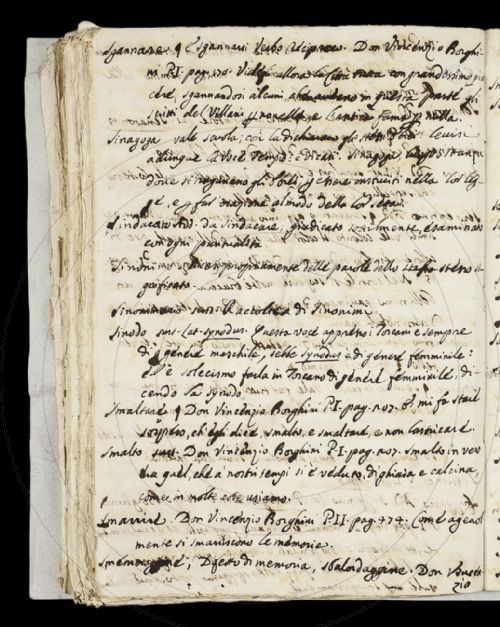 Sgannare. ¶ E sgannarsi Verbo reciproco. Don Vincenzio Borghi-
ni P.I. pag. 170. allora la Città tutta con grandissimo pia-
cere, sgannandosi alcuni, che in questa parte gli
scritti del Villani per novelle, e l'antica fama per nulla.
Sinagoga vale scuola, così la dichiarano gli
adunque la voce Tempio: e dicasi. Sinagoga
dove si
ge, e per far orazione al modo della lor setta.
Sindacato Add. da sindacare, giudicato, esaminato
con ogni puntualità.
Sinonimo propriamente delle parole dello stesso si-
gnificato.
Sinonimario sust. Raccolta di Sinonimi.
Sinodo sust. Lat. synodus. Questa voce appresso i Toscani è sempre
di genere maschile, sebbe synodus è di genere femminile:
ed è solecismo farla in Toscano di genere femminile, di-
cendo la synodo.
Smaltare ¶ Don Vincenzio Borghini P.I. pag. 207. E mi fo stail
, ch'egli dice, smalto, e smaltare, e non lastricare.
Smalto sust. Don Vincenzio Borghini P.I. pag. 207. smalto in vero
era quel, che a nostri tempi si è veduto, di ghiaia e calcina,
come in molte cose usiamo.
Smarrire. Don Vincenzio Borghini P.II. pag. 474. Com'è agevol
mente si smarriscono le memorie.
smemoraggine, Difetto di memoria, sbalordaggine. Don Vincen
zio